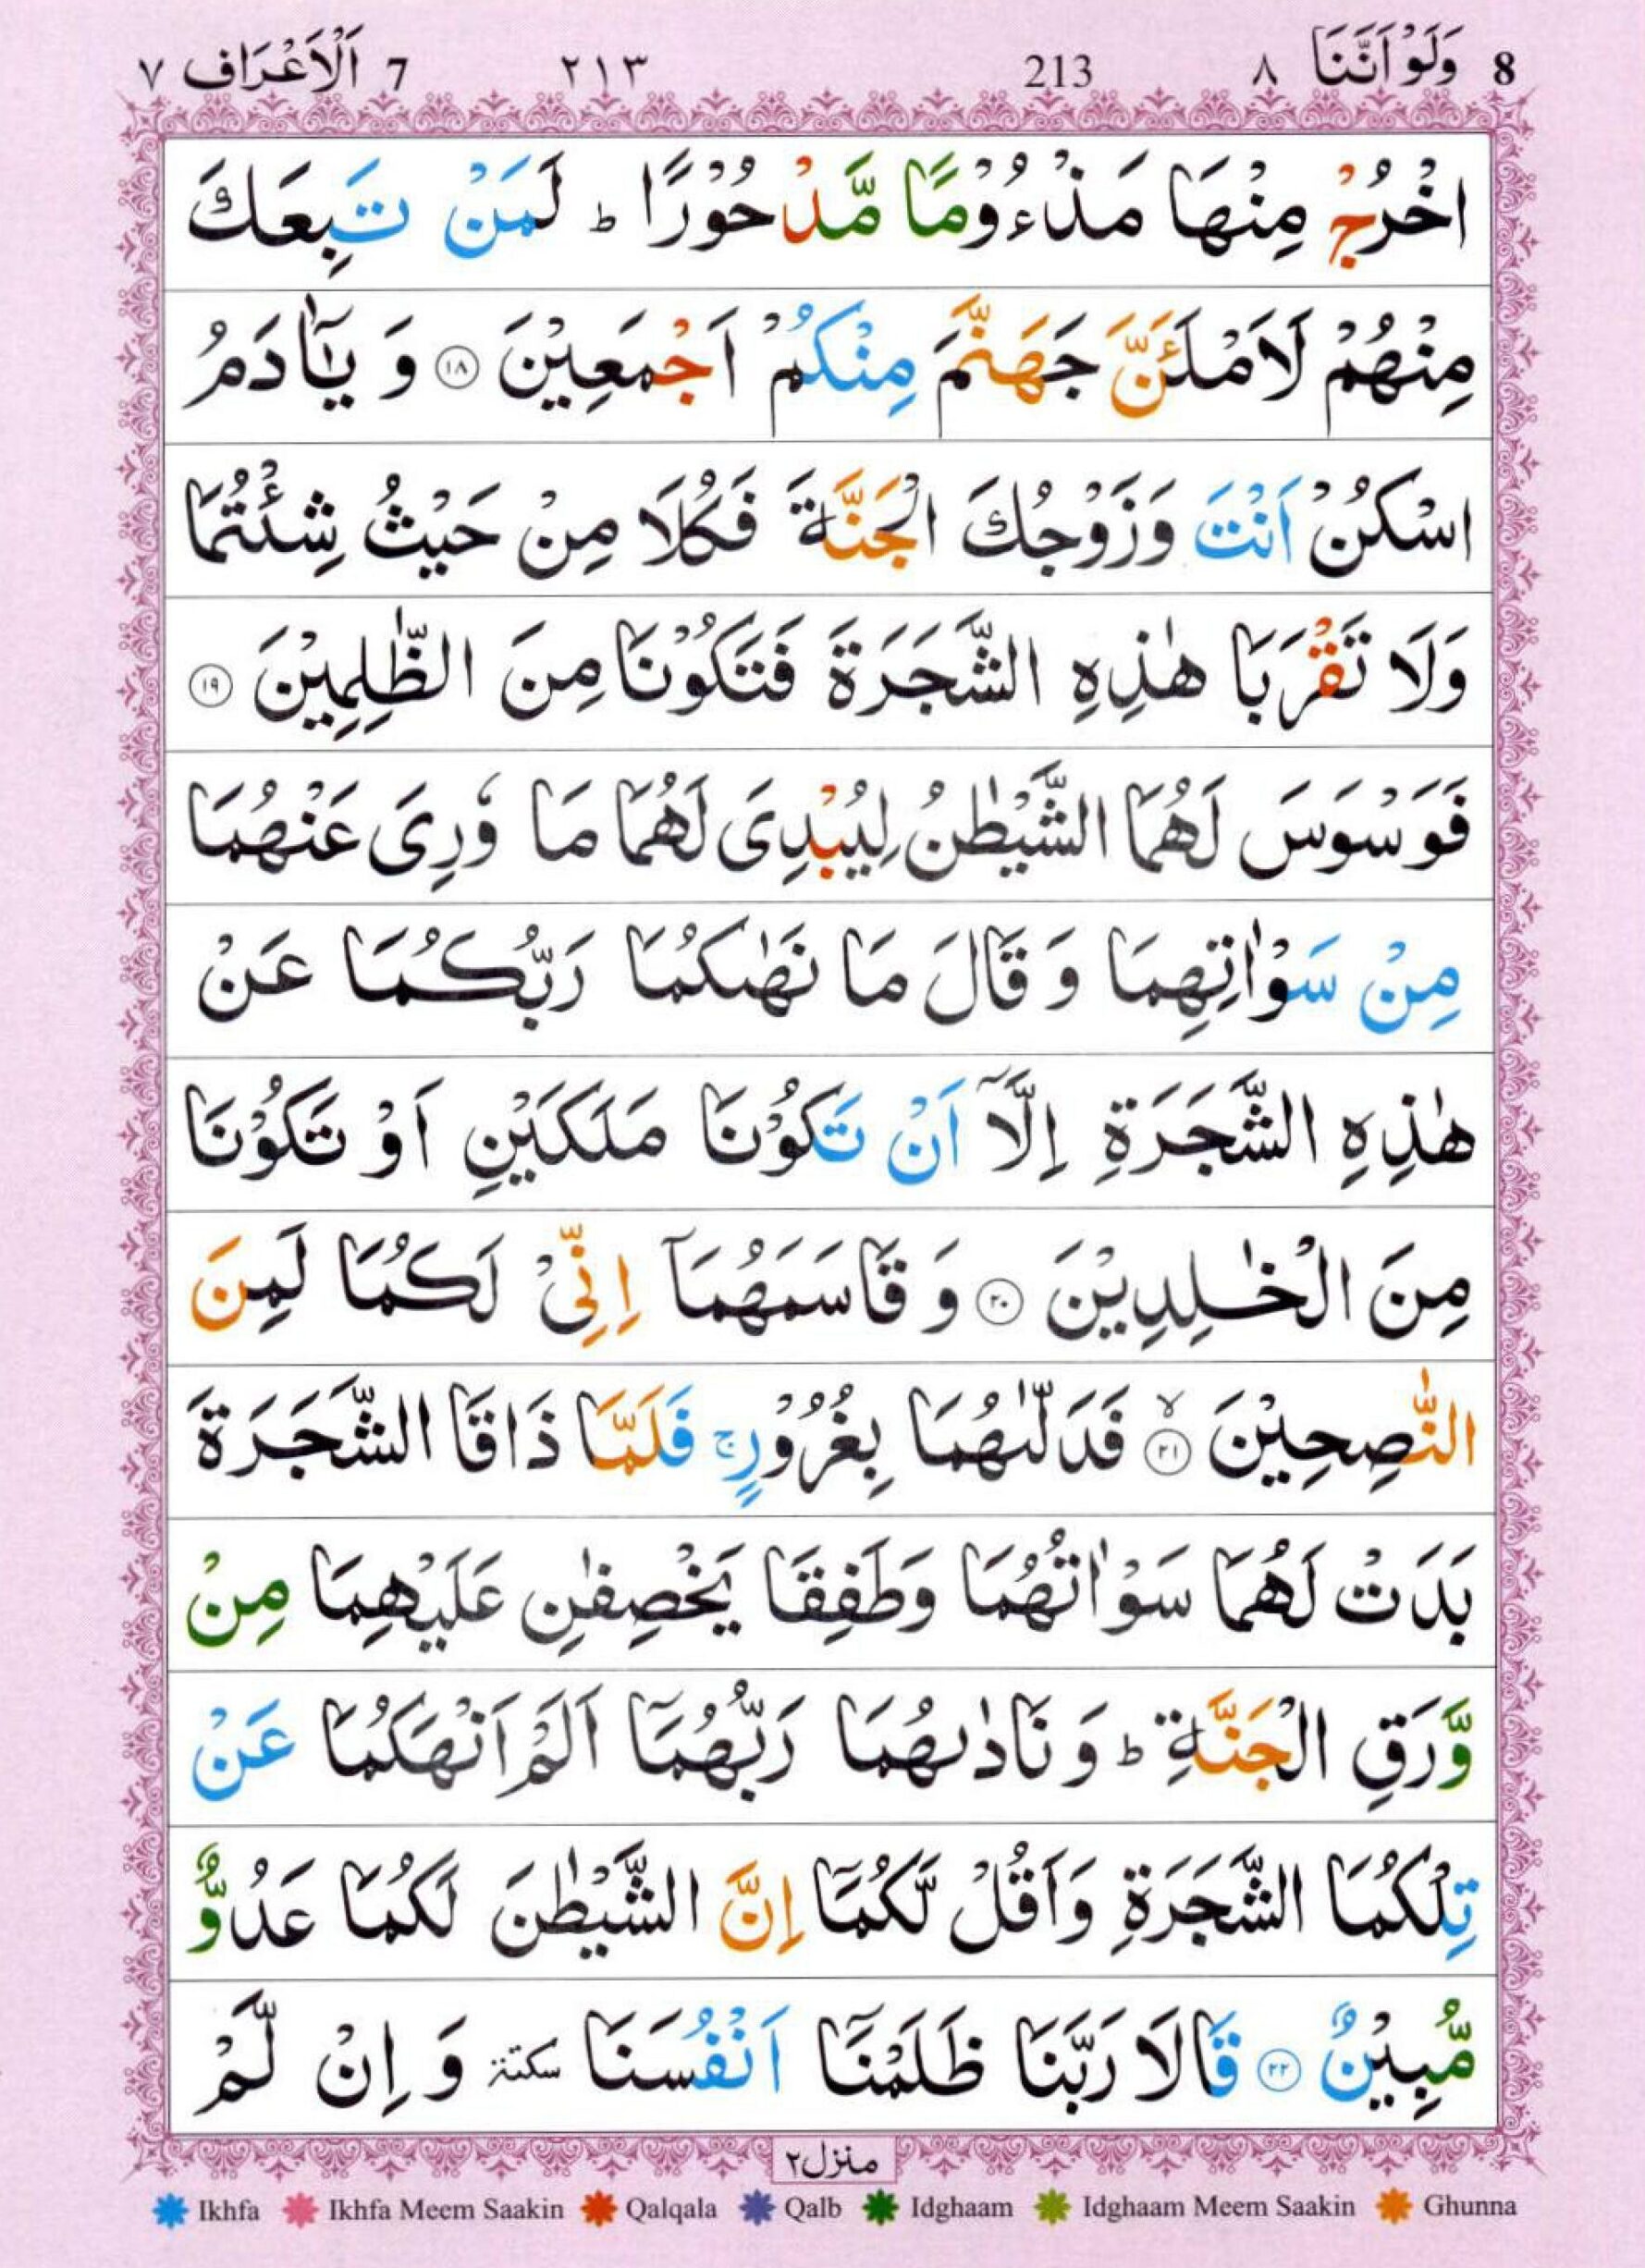 8 وَلَوْ اَنَّنَا ٨ 213 ٢١٣ 7 اَلْاَعْرَاف ٧
اخْرُجْ مِنْهَا مَذْءُوْمًا مَّدْحُوْرًا ؕ لَمَنْ تَبِعَكَ
مِنْهُمْ لَاَمْلَـَٔنَّ جَهَنَّمَ مِنْكُمْ اَجْمَعِيْنَ ﴿١٨﴾ وَ يٰۤاٰدَمُ
اسْكُنْ اَنْتَ وَزَوْجُكَ الْجَنَّةَ فَكُلَا مِنْ حَيْثُ شِئْتُمَا
وَلَا تَقْرَبَا هٰذِهِ الشَّجَرَةَ فَتَكُوْنَا مِنَ الظّٰلِمِيْنَ ﴿١٩﴾
فَوَسْوَسَ لَهُمَا الشَّيْطٰنُ لِيُبْدِىَ لَهُمَا مَا وٗرِىَ عَنْهُمَا
مِنْ سَوْاٰتِهِمَا وَ قَالَ مَا نَهٰىكُمَا رَبُّكُمَا عَنْ
هٰذِهِ الشَّجَرَةِ اِلَّاۤ اَنْ تَكُوْنَا مَلَكَيْنِ اَوْ تَكُوْنَا
مِنَ الْخٰلِدِيْنَ ﴿٢٠﴾ وَ قَاسَمَهُمَاۤ اِنِّىْ لَكُمَا لَمِنَ
النّٰصِحِيْنَ ۙ﴿٢١﴾ فَدَلّٰىهُمَا بِغُرُوْرٍ ۚ فَلَمَّا ذَاقَا الشَّجَرَةَ
بَدَتْ لَهُمَا سَوْاٰتُهُمَا وَطَفِقَا يَخْصِفٰنِ عَلَيْهِمَا مِنْ
وَّرَقِ الْجَنَّةِ ؕ وَ نَادٰىهُمَا رَبُّهُمَاۤ اَلَمْ اَنْهَكُمَا عَنْ
تِلْكُمَا الشَّجَرَةِ وَاَقُلْ لَّكُمَاۤ اِنَّ الشَّيْطٰنَ لَكُمَا عَدُوٌّ
مُّبِيْنٌ ﴿٢٢﴾ قَالَا رَبَّنَا ظَلَمْنَاۤ اَنْفُسَنَا سكتة وَ اِنْ لَّمْ
منزل٢
Ikhfa Ikhfa Meem Saakin Qalqala Qalb Idghaam Idghaam Meem Saakin Ghunna